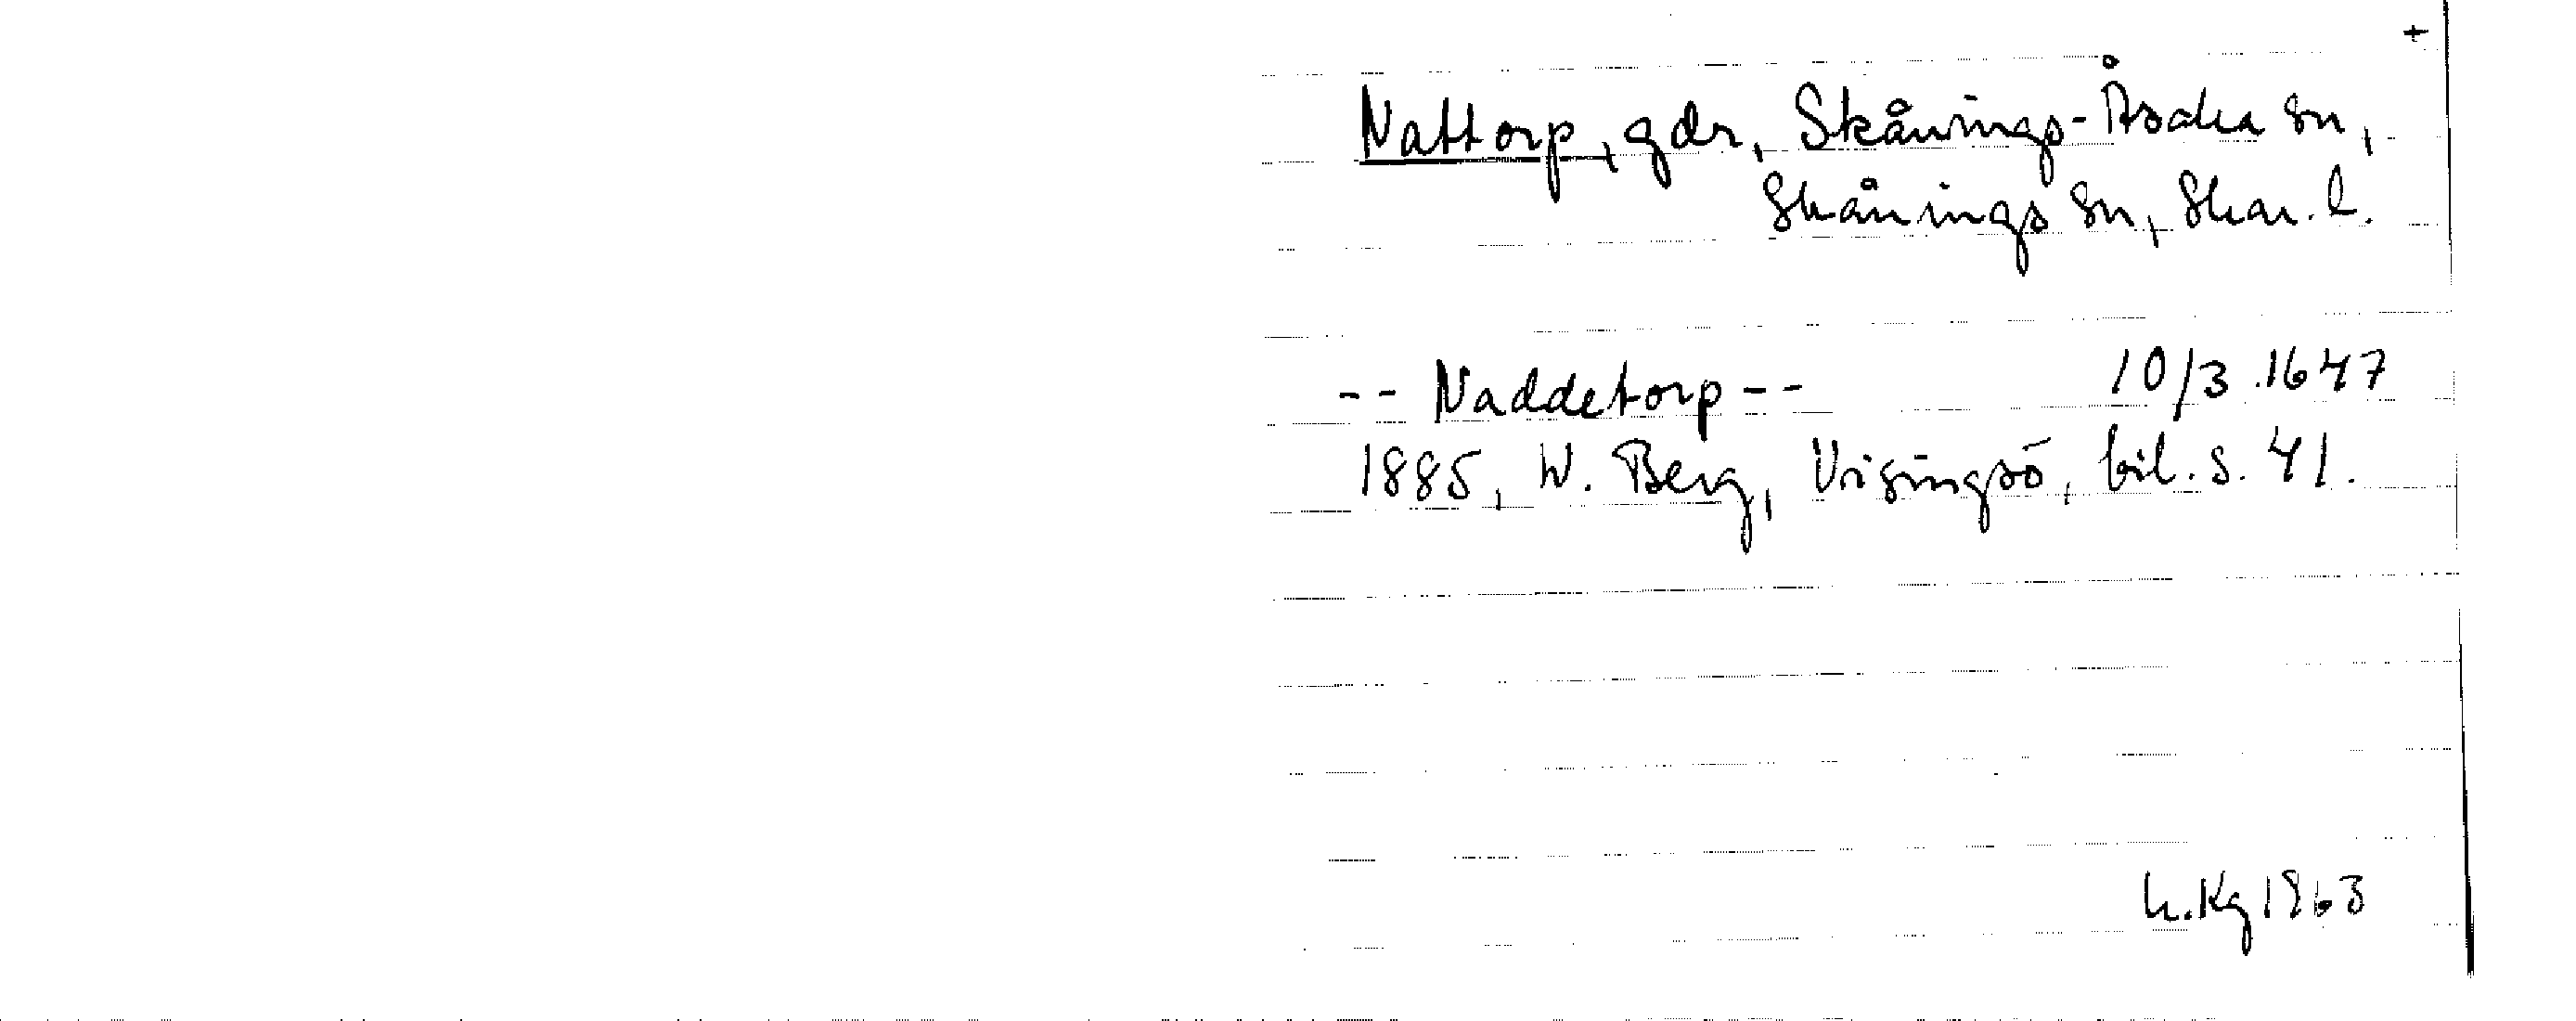 +
Nattorp, gdr, Skånings-Åsaka sn,
Skånings sn, Skar. l.
-- Naddetorp -- 10/3 1647
1885, W. Berg, Visingsö, bil. s. 41.
h.Kg 1963